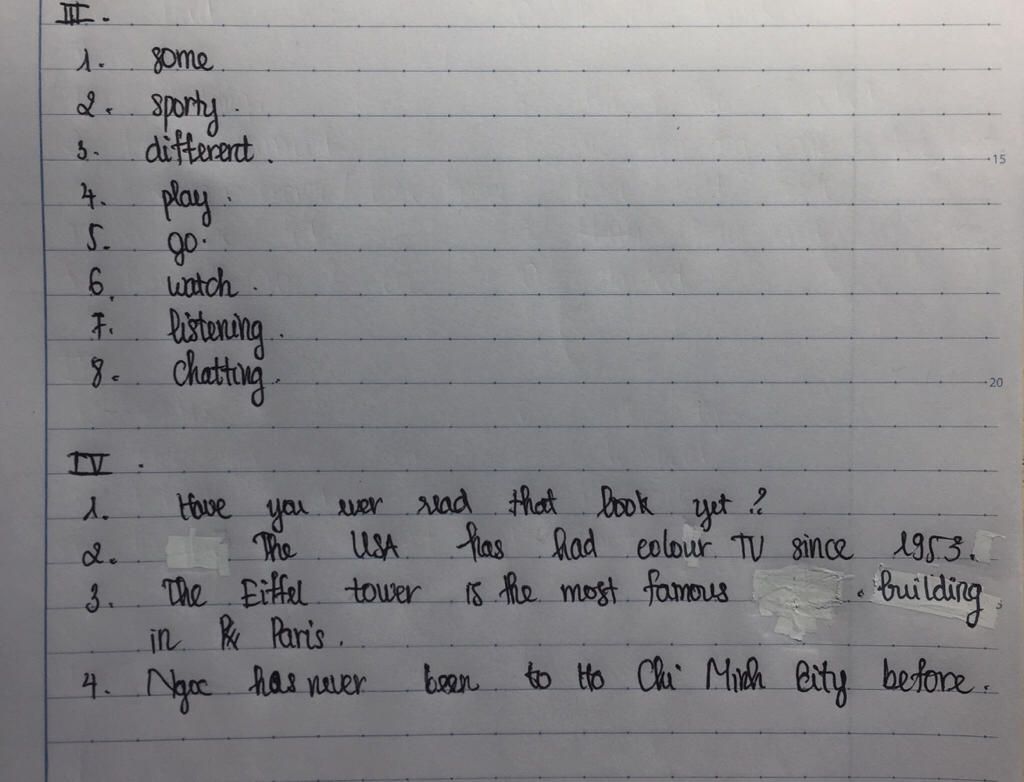 III.
1. some
2. sporty.
3. different.
4. play.
5. go.
6. watch.
7. listening.
8. chatting.
IV.
1. Have you ever read that book yet?
2. The USA has had colour TV since 1953.
3. The Eiffel tower is the most famous building
in Paris.
4. Ngoc has never been to Ho Chi Minh City before.
15
20